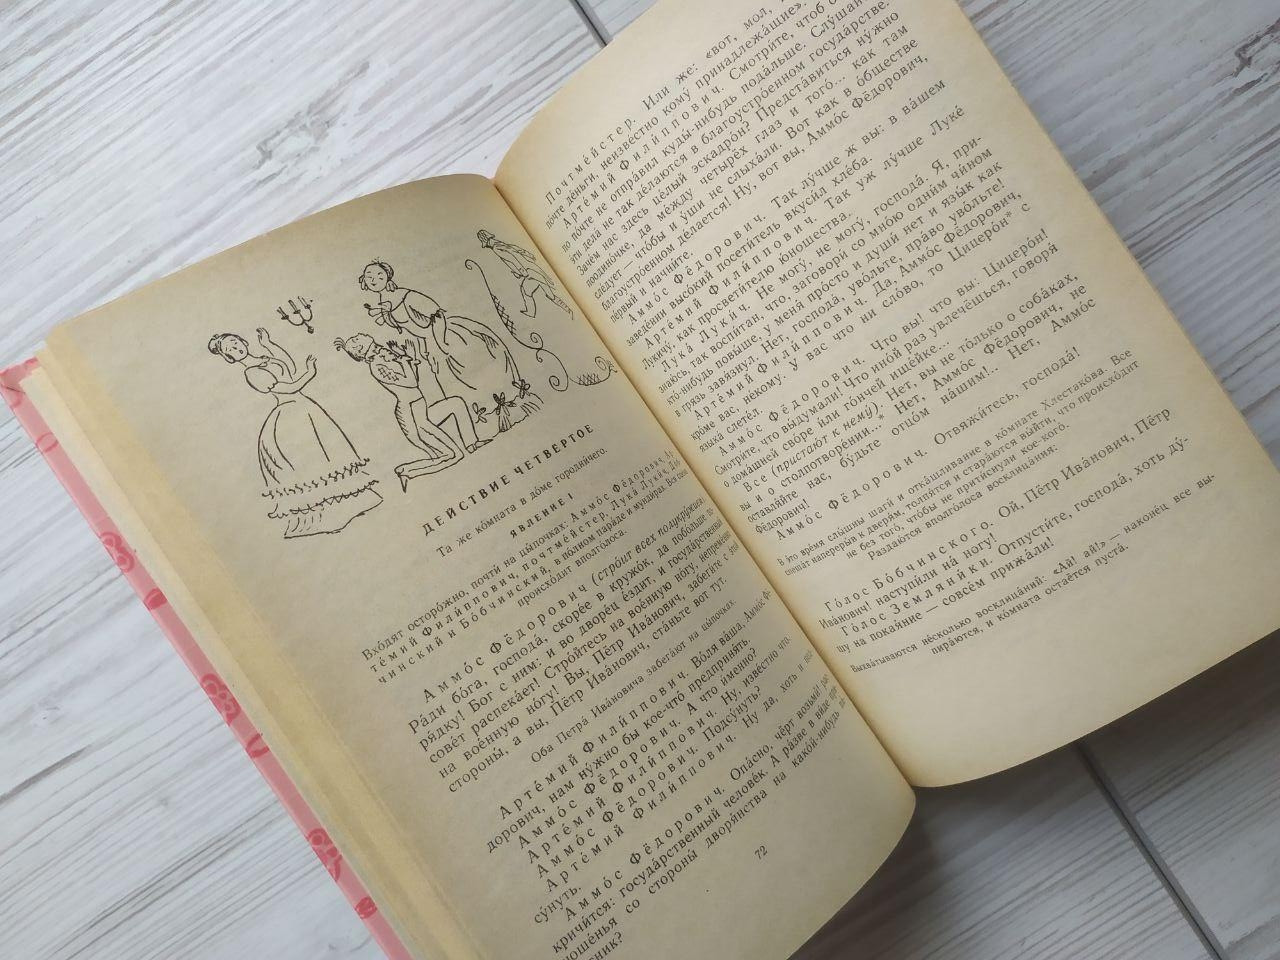 ДЕЙСТВИЕ ЧЕТВЕРТОЕ
Та же ко́мната в до́ме городни́чего.
ЯВЛЕНИЕ I
Вхо́дят осторо́жно, почти́ на цы́почках: Аммо́с Фёдорович, Ар-
те́мий Фили́ппович, почтме́йстер, Лука́ Луки́ч, До́б-
чинский и Бо́бчинский, в по́лном пара́де и мунди́рах. Вся сце́на
происхо́дит вполго́лоса.
Аммо́с Фёдорович (стро́ит всех полукру́жием).
Ра́ди бо́га, господа́, скоре́е в кружо́к, да побо́льше по-
ря́дку! Бог с ним: и во дворе́ц е́здит, и госуда́рственный
сове́т распека́ет! Стро́йтесь на вое́нную но́гу, непреме́нно
на вое́нную но́гу! Вы, Пётр Ива́нович, забеги́те с э́той
стороны́, а вы, Пётр Ива́нович, ста́ньте вот тут.
Оба Петра́ Ива́новича забега́ют на цы́почках.
Арте́мий Фили́ппович. Во́ля ва́ша, Аммо́с Фё-
дорович, нам ну́жно бы кое-что́ предприня́ть.
Аммо́с Фёдорович. А что и́менно?
Арте́мий Фили́ппович. Ну, изве́стно что.
Аммо́с Фёдорович. Подсу́нуть?
Арте́мий Фили́ппович. Ну да, хоть и под-
су́нуть.
Аммо́с Фёдорович. Опа́сно, чёрт возьми́! рас-
кричи́тся: госуда́рственный челове́к. А ра́зве в ви́де при-
ноше́нья со стороны́ дворя́нства на како́й-нибудь
72
Почтме́йстер. Или же: «вот, мол,
по́чте де́ньги, неизве́стно кому́ принадлежа́щие».
Арте́мий Фили́ппович. Смотри́те, чтоб
по по́чте не отпра́вил куды́-нибудь пода́льше. Слу́шайте:
эти дела́ не так де́лаются в благоустро́енном госуда́рстве.
Заче́м нас здесь це́лый эскадро́н? Предста́виться ну́жно
поодино́чке, да ме́жду четырёх глаз и того́... как там
сле́дует — что́бы и у́ши не слыха́ли. Вот как в о́бществе
благоустро́енном де́лается! Ну, вот вы, Аммо́с Фёдорович,
пе́рвый и начни́те.
Аммо́с Фёдорович. Так лу́чше ж вы: в ва́шем
заведе́нии высо́кий посети́тель вкуси́л хле́ба.
Арте́мий Фили́ппович. Так уж лу́чше Луке́
Лукичу́, как просвети́телю ю́ношества.
Лука́ Луки́ч. Не могу́, не могу́, господа́. Я, при-
знаю́сь, так воспи́тан, что, заговори́ со мно́ю одни́м чи́ном
кто́-нибудь повы́ше, у меня́ про́сто и души́ нет и язы́к как
в грязь завя́знул. Нет, господа́, уво́льте, пра́во уво́льте!
Арте́мий Фили́ппович. Да, Аммо́с Фёдорович,
кро́ме вас, не́кому. У вас что ни сло́во, то Цицеро́н* с
языка́ слете́л.
Аммо́с Фёдорович. Что вы! что вы: Цицеро́н!
Смотри́те, что вы́думали! Что ино́й раз увлечёшься, говоря́
о дома́шней сво́ре и́ли го́нчей ище́йке...
Все (пристаю́т к нему́). Нет, вы не то́лько о соба́ках,
вы и о столпотворе́нии...* Нет, Аммо́с Фёдорович, не
оставля́йте нас, бу́дьте отцо́м на́шим!.. Нет, Аммо́с
Фёдорович!
Аммо́с Фёдорович. Отвяжи́тесь, господа́!
В э́то вре́мя слы́шны шаги́ и отка́шливание в ко́мнате Хлестако́ва. Все
спеша́т наперерыв к дверя́м, толпя́тся и стара́ются вы́йти, что происхо́дит
не без того́, что́бы не прити́снули кое-кого́.
Раздаю́тся вполго́лоса восклица́ния:
Го́лос Бо́бчинского. Ой, Пётр Ива́нович, Пётр
Ива́нович! наступи́ли на́ ногу!
Го́лос Земляни́ки. Отпусти́те, господа́, хоть ду́-
шу на покая́ние — совсе́м прижа́ли!
Выхва́тываются не́сколько восклица́ний: «Ай! ай!» — наконе́ц все вы-
пира́ются, и ко́мната остаётся пуста́.